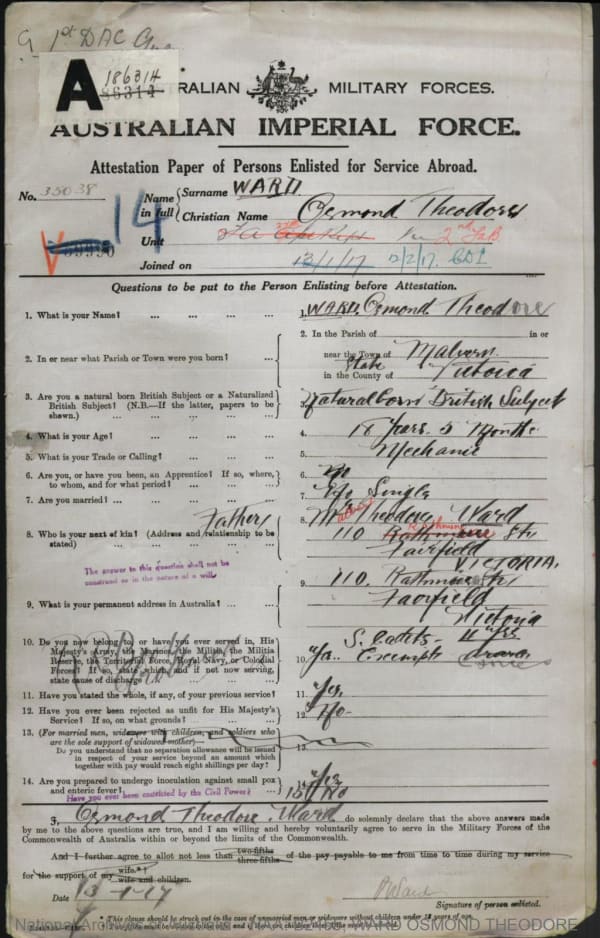 1st DAC
A
186314
86314
RALIAN MILITARY FORCES.
AUSTRALIAN IMPERIAL FORCE.
Attestation Paper of Persons Enlisted for Service Abroad.
No. 35038
14
Name in full { Surname WARD.
Christian Name Osmond Theodore
Unit 2nd FAB
Joined on 13/1/17 2/2/17.
Questions to be put to the Person Enlisting before Attestation.
1. What is your Name? ... ... ... ... 1. WARD. Osmond Theodore
2. In or near what Parish or Town were you born? ... 2. In the Parish of in or
near the Town of Malvern
State
in the County of Victoria
3. Are you a natural born British Subject or a Naturalized British Subject? (N.B.—If the latter, papers to be shown.) ... 3. Natural born British Subject
4. What is your Age? ... ... ... 4. 18 Years. 5 Months
5. What is your Trade or Calling? ... ... ... 5. Mechanic
6. Are you, or have you been, an Apprentice? If so, where, to whom, and for what period? ... ... 6. No
7. Are you married? ... ... ... ... 7. No Single
8. Who is your next of kin? (Address and relationship to be stated) ... ... Father 8. Mr Theodore Ward
110 Rathmine Str
Fairfield
VICTORIA.
The answer to this question shall not be
construed as in the nature of a will.
9. What is your permanent address in Australia? ... 9. 110. Rathmine Str
Fairfield
Victoria
10. Do you now belong to, or have you ever served in, His Majesty's Army, the Marines, the Militia, the Militia Reserve, the Territorial Force, Royal Navy, or Colonial Forces? If so, state which, and if not now serving, state cause of discharge 10. S. Cadets- 4 yrs
Exempt
11. Have you stated the whole, if any, of your previous service? 11. Yes.
12. Have you ever been rejected as unfit for His Majesty's Service? If so, on what grounds? ... ... 12. No-
13. (For married men, widowers with children, and soldiers who are the sole support of widowed mother)—
Do you understand that no separation allowance will be issued in respect of your service beyond an amount which together with pay would reach eight shillings per day? 13.
14. Are you prepared to undergo inoculation against small pox and enteric fever? 14. Yes
Have you ever been convicted by the Civil Power? 15 No
I, Osmond Theodore Ward do solemnly declare that the above answers made
by me to the above questions are true, and I am willing and hereby voluntarily agree to serve in the Military Forces of the
Commonwealth of Australia within or beyond the limits of the Commonwealth.
And I further agree to allot not less than two-fifths three-fifths of the pay payable to me from time to time during my service
for the support of my wife.* wife and children.
Date 13-1-17
O Ward
Signature of person enlisted.
* This clause should be struck out in the case of unmarried men or widowers without children under 18 years of age.
WARD OSMOND THEODORE